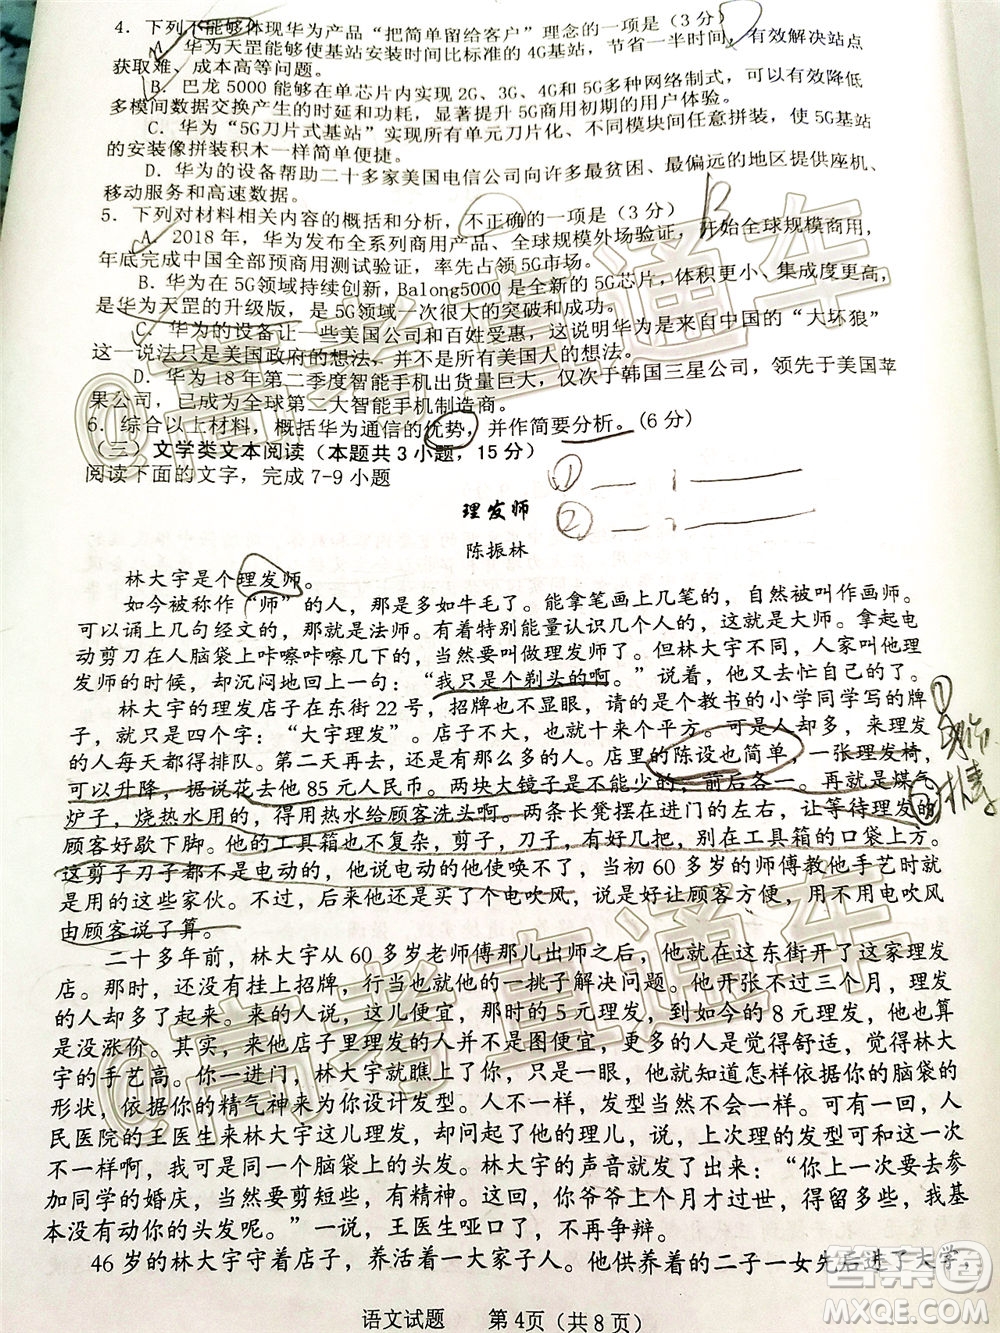 4. 下列不能够体现华为产品“把简单留给客户”理念的一项是(3分)
A. 华为天罡能够使基站安装时间比标准的4G基站，节省一半时间，有效解决站点
获取难、成本高等问题。
B. 巴龙5000能够在单芯片内实现2G、3G、4G和5G多种网络制式，可以有效降低
多模间数据交换产生的时延和功耗，显著提升5G商用初期的用户体验。
C. 华为“5G刀片式基站”实现所有单元刀片化、不同模块间任意拼装，使5G基站
的安装像拼装积木一样简单便捷。
D. 华为的设备帮助二十多家美国电信公司向许多最贫困、最偏远的地区提供座机、
移动服务和高速数据。
B
5. 下列对材料相关内容的概括和分析，不正确的一项是(3分)
A. 2018年，华为发布全系列商用产品、全球规模外场验证，开始全球规模商用，
年底完成中国全部预商用测试验证，率先占领5G市场。
B. 华为在5G领域持续创新，Balong5000是全新的5G芯片，体积更小、集成度更高，
是华为天罡的升级版，是5G领域一次很大的突破和成功。
C. 华为的设备让一些美国公司和百姓受惠，这说明华为是来自中国的“大坏狼”
这一说法只是美国政府的想法，并不是所有美国人的想法。
D. 华为18年第二季度智能手机出货量巨大，仅次于韩国三星公司，领先于美国苹
果公司，已成为全球第二大智能手机制造商。
6. 综合以上材料，概括华为通信的优势，并作简要分析。(6分)
(三) 文学类文本阅读(本题共3小题，15分)
阅读下面的文字，完成7-9小题
①
②
理发师
陈振林
林大宇是个理发师。
如今被称作“师”的人，那是多如牛毛了。能拿笔画上几笔的，就被叫作画师。
可以诵上几句经文的，那就是法师。有着特别能量认识几个人的，这就是大师。拿起电
动剪刀在人脑袋上咔嚓咔嚓几下的，当然要叫理发师了。但林大宇不同，人家叫他理
发师的时候，却沉闷地回上一句：“我只是个剃头的啊。”说着，又去忙自己的了。
林大宇的理发店子在东街22号，招牌不显眼，请的是个教书的小学同学写的牌
子，就是四个字：“大宇理发”。店子不大，也就十来个平方。可是人却多，来理发
的人每天都得排队。第二天再去，还是有那么多的人。店里的陈设也简单，一张理发椅，
可以升降，据说花去他85元人民币。两块大镜子是不能少的，前后各一。再就是煤气
炉子，烧热水用的，得用热水给顾客洗头啊。两条长凳摆在进门的左右，让等待理发的
顾客好歇下脚。他的工具箱也不复杂，剪子，刀子，有好几把，别在工具箱的口袋上方。
这剪子刀子都不是电动的，他说电动的他使唤不了，当初60多岁的师傅教他手艺时就
是用的这些家伙。不过，后来他还是买了个电吹风，说是好让顾客方便，用不用电吹风
由顾客说了算。
①
②朴素
二十多年前，林大宇从60多岁老师傅那儿出师之后，他就在这东街开了这家理发
店。那时，还没有挂上招牌，只是他的一挑子解决问题。他开张不过三个月，理发
的人却多了起来。来的人说，这儿便宜，那时的5元理发，到如今的8元理发，算
是没涨价。其实，来他店子里理发的人并不是图便宜，更多的是觉得舒适，觉得林大
宇的手艺高。你一进门，林大宇就瞧上了一眼，他就知道怎样理发了。他看你的脑袋的
形状，依据你的精气神来为你设计发型。人不一样，发型当然不会一样。可有一回，人
民医院的王医生来林大宇这儿理发，却问起了他的理儿，说，上次理的发型可和这次
不一样啊，我可是同一个脑袋上的头发。林大宇的声音当然大了起来：“你上一次要去参
加同学的婚庆，当然要剪短些，有精神。这回，你爷爷上个月才过世，得留多些，我基
本没有动你的头发呢。”一说，王医生哑口了，不再争辩。
46岁的林大宇守着店子，养活着一大家子人。他供养着的二子一女先后进了大学，
语文试题 第4页(共8页)
@高考直通车
@高考直通车
答案圈
MXQE.COM